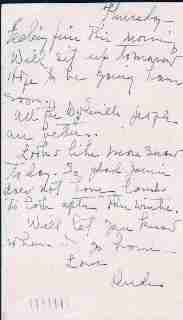 Thursday
Feeling fine this morning
Will sit up tomorrow
Hope to be going home
soon.
All the people
are better.
Looks like more snow
today.
does not come
to look after this winter.
Will let you know
when I go home
Love